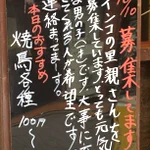 募集してます
インコの里親さんを
募集しています!とっても元気
な男の子(1才)です!大事に
してくれる人が希望です!
連絡まってます。
本日のおすすめ
焼鳥各種
100円〜